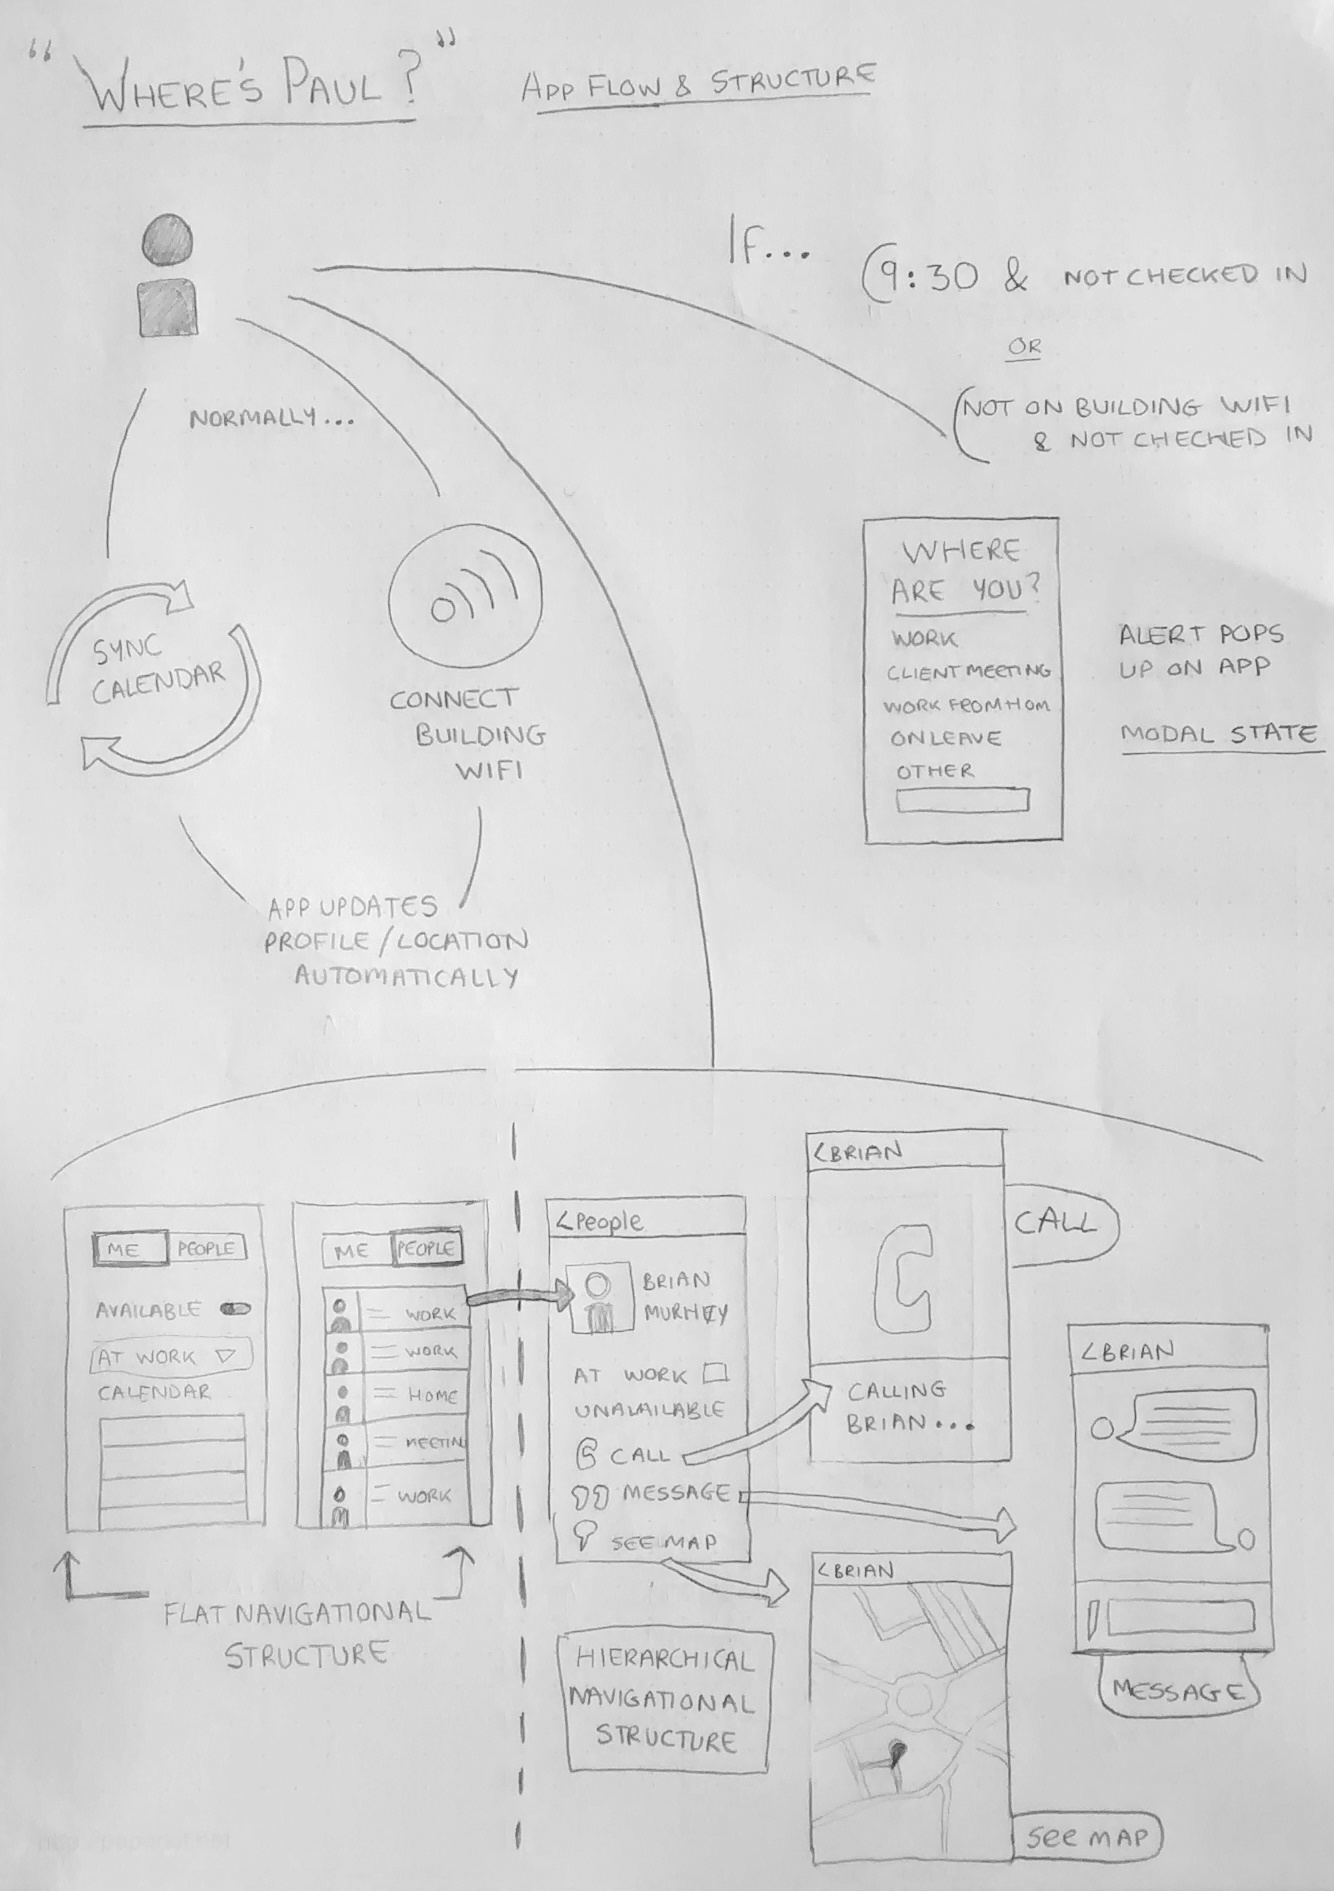 "WHERE'S PAUL?"
APP FLOW & STRUCTURE
IF...
(9:30 & NOT CHECKED IN
OR
(NOT ON BUILDING WIFI
& NOT CHECKED IN
NORMALLY...
SYNC
CALENDAR
CONNECT
BUILDING
WIFI
APP UPDATES
PROFILE/LOCATION
AUTOMATICALLY
WHERE
ARE YOU?
WORK
CLIENT MEETING
WORK FROM HOM
ON LEAVE
OTHER
ALERT POPS
UP ON APP
MODAL STATE
ME PEOPLE
AVAILABLE
AT WORK
CALENDAR
ME PEOPLE
WORK
WORK
HOME
MEETIN
WORK
FLAT NAVIGATIONAL
STRUCTURE
<People
BRIAN
AT WORK
UNAVAILABLE
CALL
MESSAGE
SEE MAP
HIERARCHICAL
NAVIGATIONAL
STRUCTURE
<BRIAN
CALLING
BRIAN...
CALL
<BRIAN
MESSAGE
<BRIAN
SEE MAP